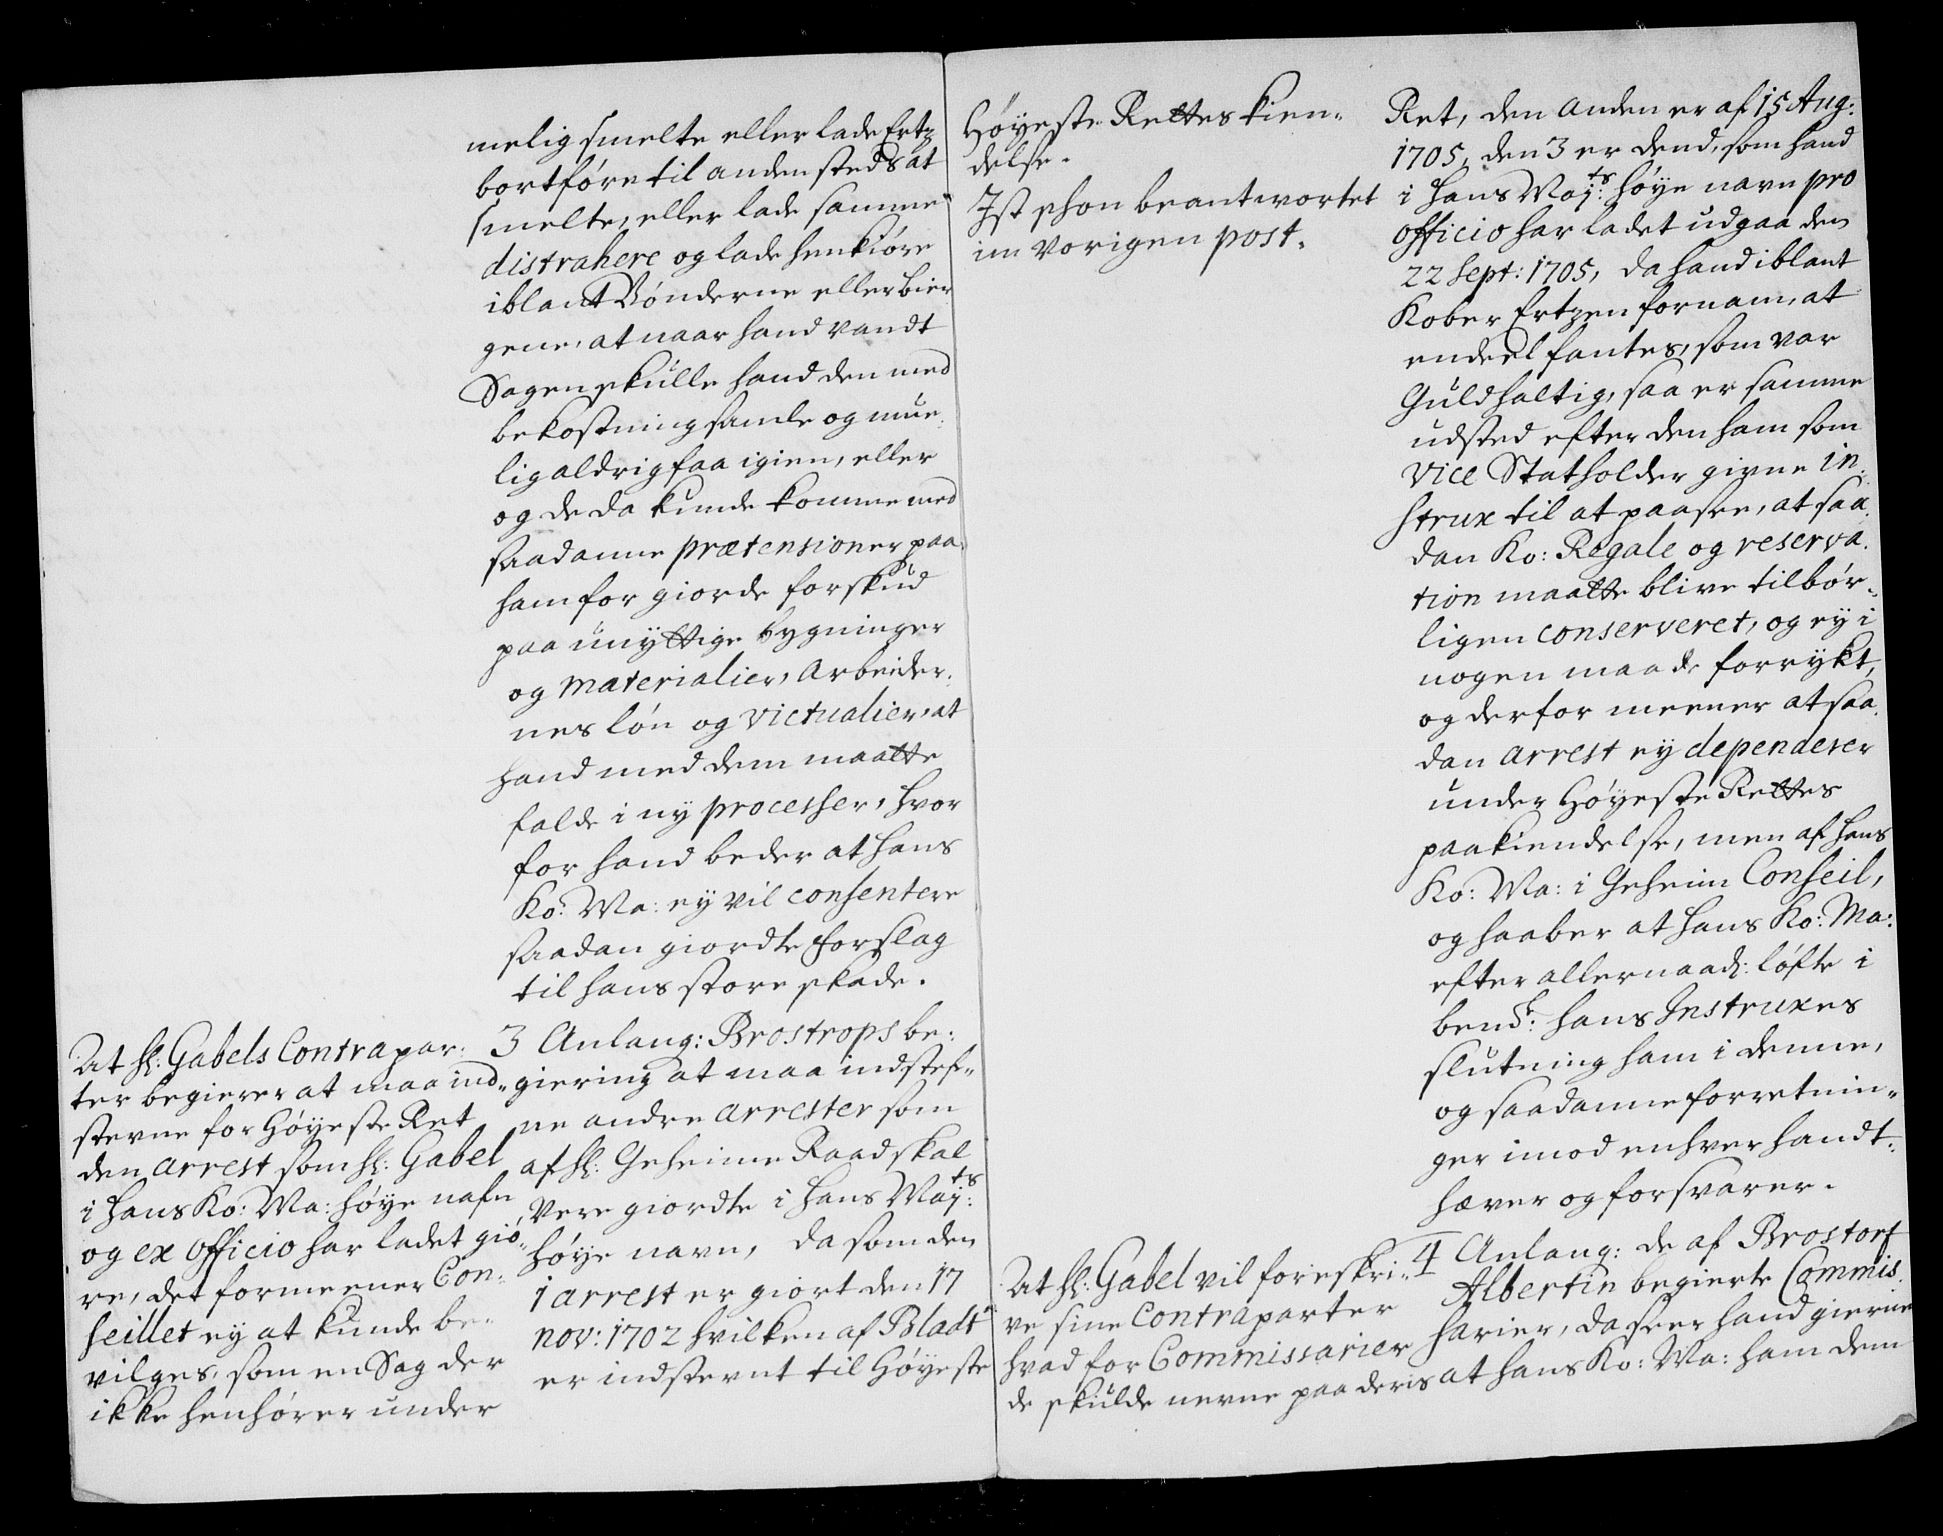 melig smelte eller lade Ertz
bortføre til andensteds at
smelte, eller lade samme
distrahere og lade henkiøre
iblant Bønderne eller bier
gene, at naar hand vandt
Sagen skulle hand den med
bekostning samle og mue
lig aldrig faa igien, eller
og de da kunde komme med
saadanne prætensioner paa
ham for giorde forskud
paa unyttige bygninger
og materialier, Arbeider
nes løn og victualier, at
hand med dem maatte
falde i ny processer, hvor
for hand beder at hans
Ko: Ma: ey vil consentere
saadan giordte forslag
til hans store skade.
At H: Gabels Contrapar:
ter begierer at maa ind„
stevne for Høyeste Ret
den arrest som H: Gabel
i Hans Ko: Ma: høye nafn
og ex officio har ladet giø„
re, det formeener Con„
seillet ey at kunde be„
vilges, som en Sag der
ikke henhører under
3 Anlang: Brostrops be„
giering at maa indstef„
ne andre arrester som
af H: Geheime Raad skal
vere giordte i Hans Maj:ts
høye navn, da som den
1 arrest er giort den 17
nov: 1702 hvilken af Bladt
er indstevnt til Høyeste
Høyeste Rettes kien„
delse.
Ist schon beantwortet
im vorigen post.
At H: Gabel vil foreskri„
ve sine contraparter
hvad for Commissarier
de skulde nevne paa deris
Ret, den anden er af 15 Aug:
1705, den 3 er dend, som hand
i Hans Maj:ts høye navn pro
officio har ladet udgaa den
22 Sept: 1705, da hand iblant
Kober Ertzen fornam, at
endeel fantes, som var
Guldhaltig, saa er samme
udsted efter den ham som
Vice Statholder givne in„
strux til at paasee, at saa
dan Ko: Regale og reserva
tion maatte blive tilbør„
ligen conserveret, og ey i
nogen maade forrykt,
og derfor meener at saa
dan arrest ey dependerer
under Høyeste Rettes
paakiendelse, men af Hans
Ko: Ma: i Geheim Conseil,
og haaber at Hans Ko: Ma:
efter allernaad: løfte i
bend:te hans Instruxes
slutning ham i denne,
og saadanne forretnin„
ger imod enhver handt„
hæver og forsvarer.
4 Anlang: de af Brostorf
Albertin begierte Commis
sarier, da seer hand gierne
at Hans Ko: Ma: ham dem